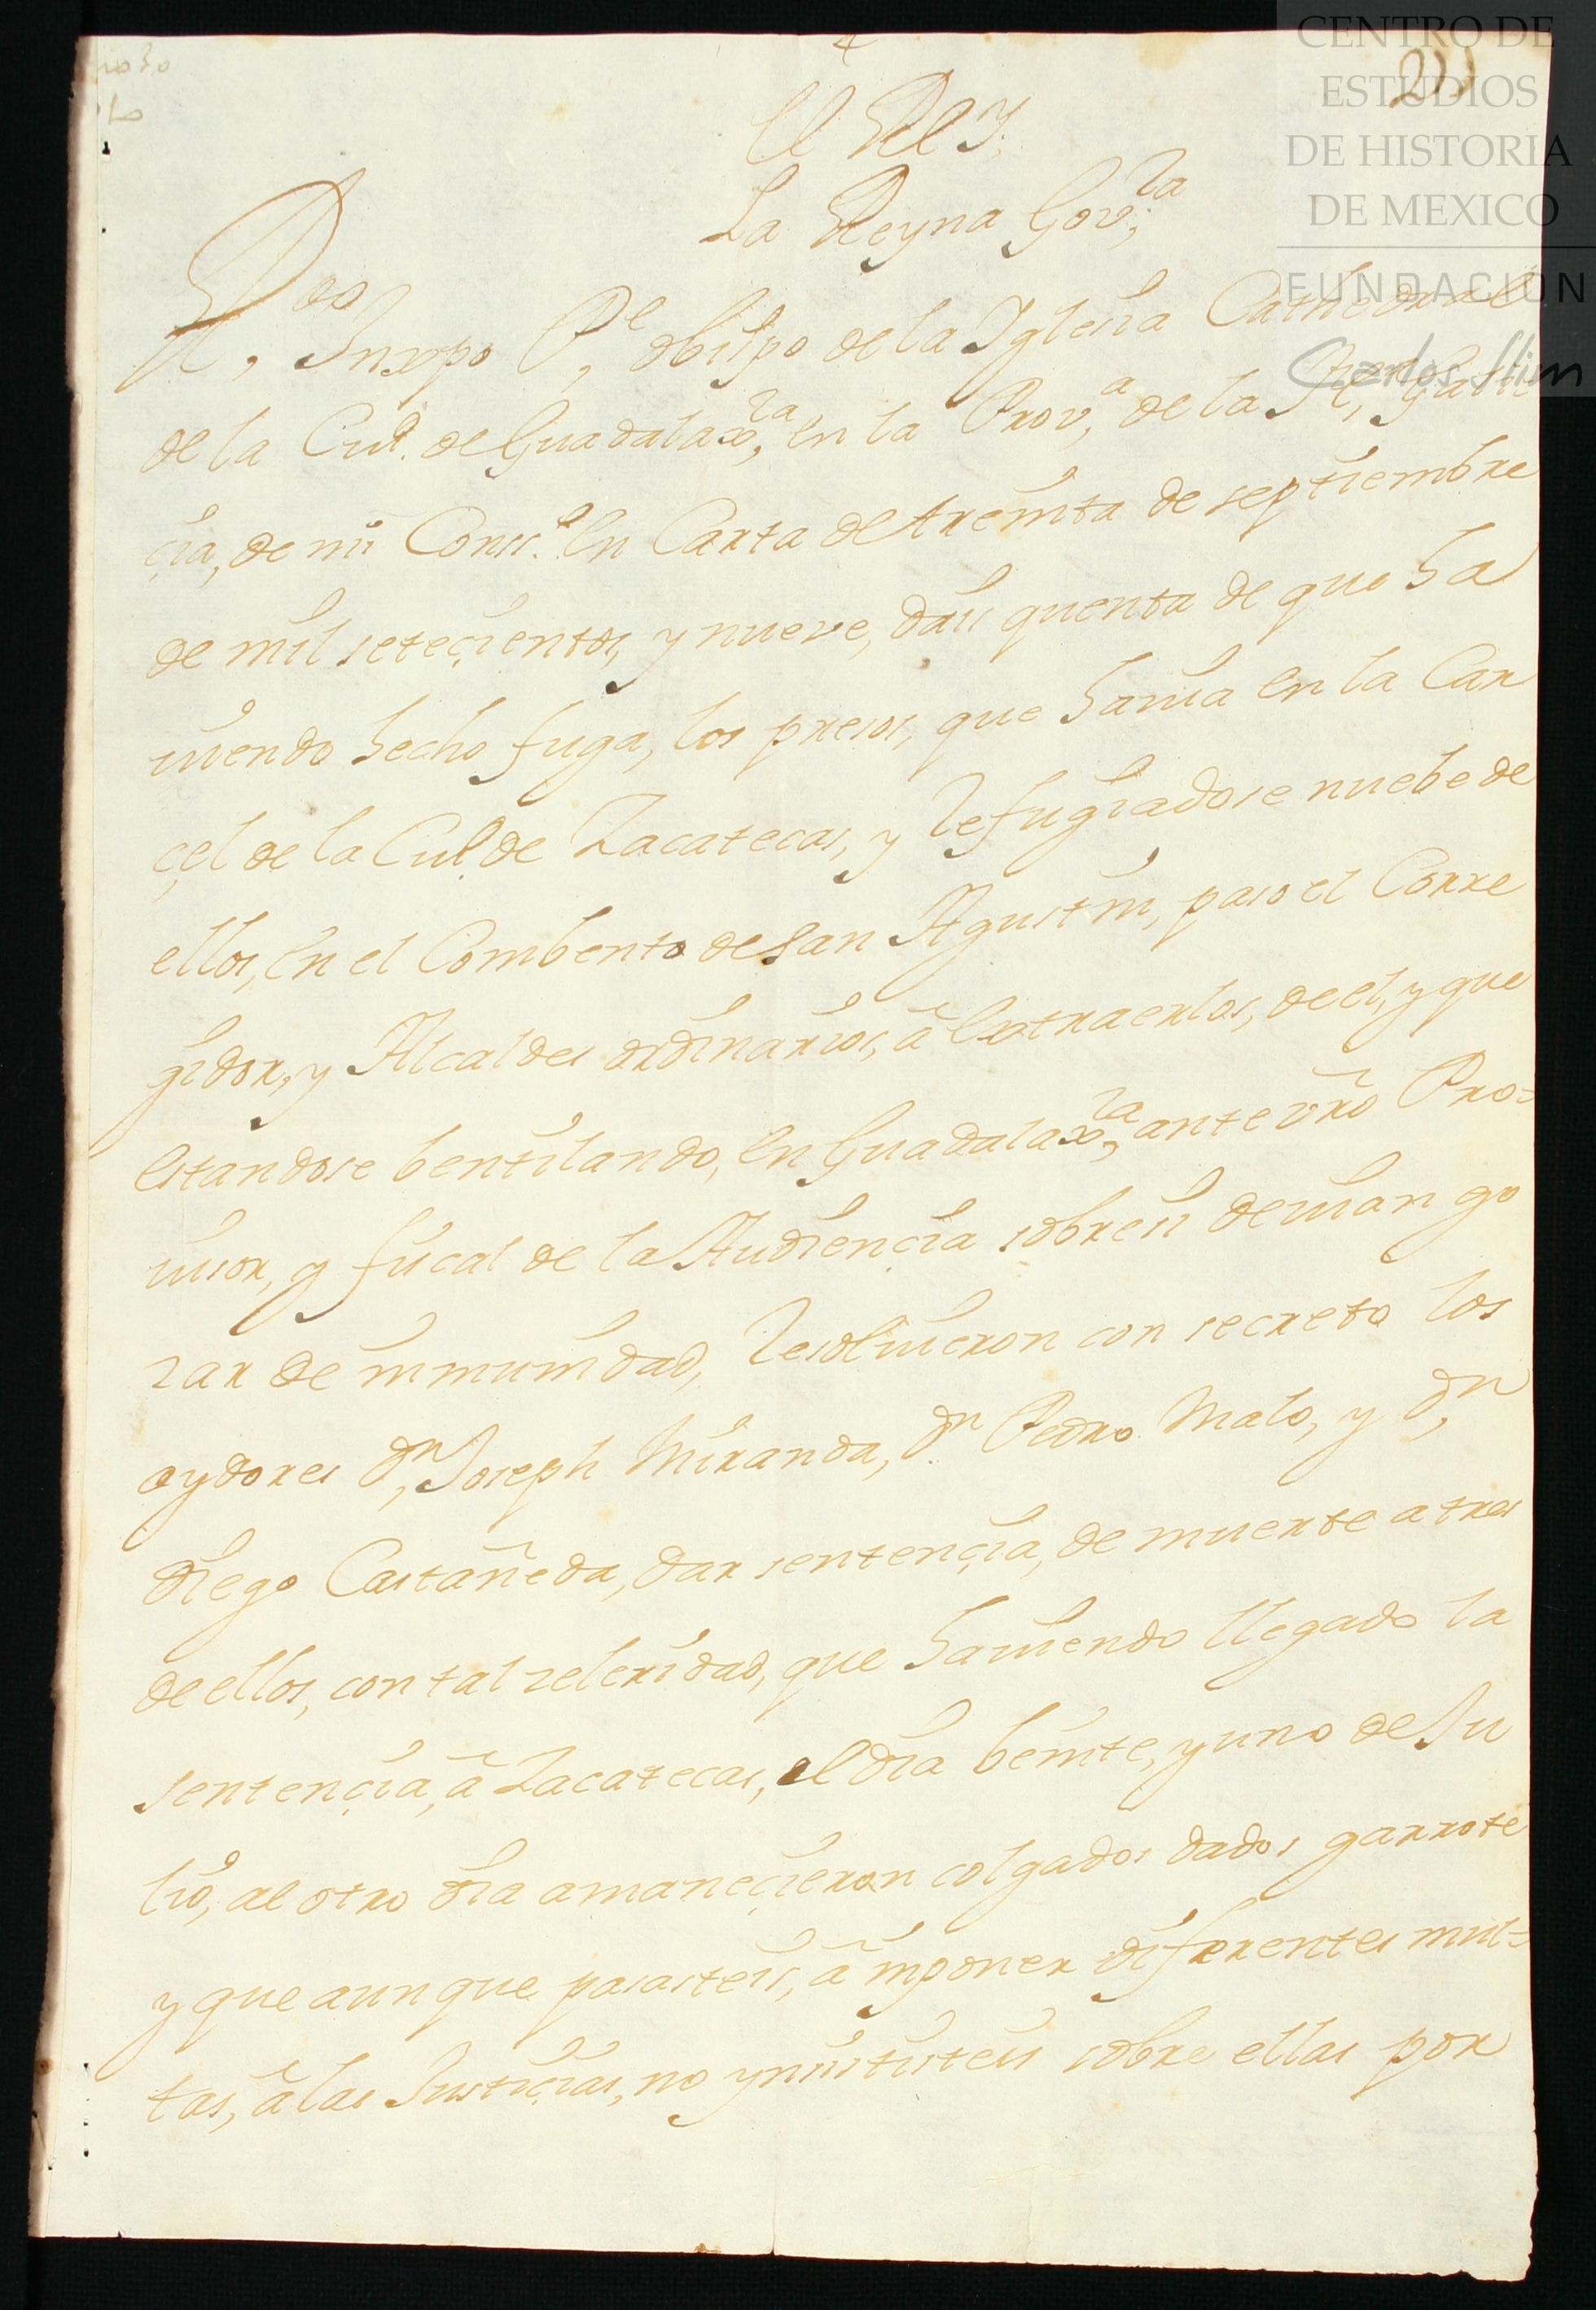 CENTRO DE
ESTUDIOS
DE HISTORIA
DE MEXICO
FUNDACION
Carlos Slim
El Rey
La Reyna Gov.ra
R.do Inxpo P.e obispo de la Iglesia Cathedral
de la Ciud. de Guadalax.ra en la Prov.a de la Gali
çia, de mi Cons.o En Carta de treinta de septiembre
de mil seteçientos, y nueve, dais quenta de que ha
uiendo hecho fuga, los presos, que hauia en la Car
çel de la Ciud. de Zacatecas, y Refugiadose nuebe de
ellos, en el Combento de San Agustin, paso el Corre
gidor, y Alcaldes ordinarios, â Extraerlos, de el, y que
estandose bentilando, en Guadalax.ra ante vr̃o Pro=
uisor, y fiscal de la Audiençia sobre si deuian go
zar de inmunidad, Resoluieron con secreto los
oydores D.n Joseph Miranda, D.n Pedro Malo, y D.n
Diego Castañeda, dar sentençia, de muerte a tres
de ellos, con tal zeleridad, que hauiendo llegado la
sentençia, â Zacatecas, el dia beinte, y uno de Ju
lio, al otro dia amaneçieron colgados dados garrote
y que aunque pasasteis, â imponer diferentes mul=
tas, â las Justiçias, no ynsististeis sobre ellas por